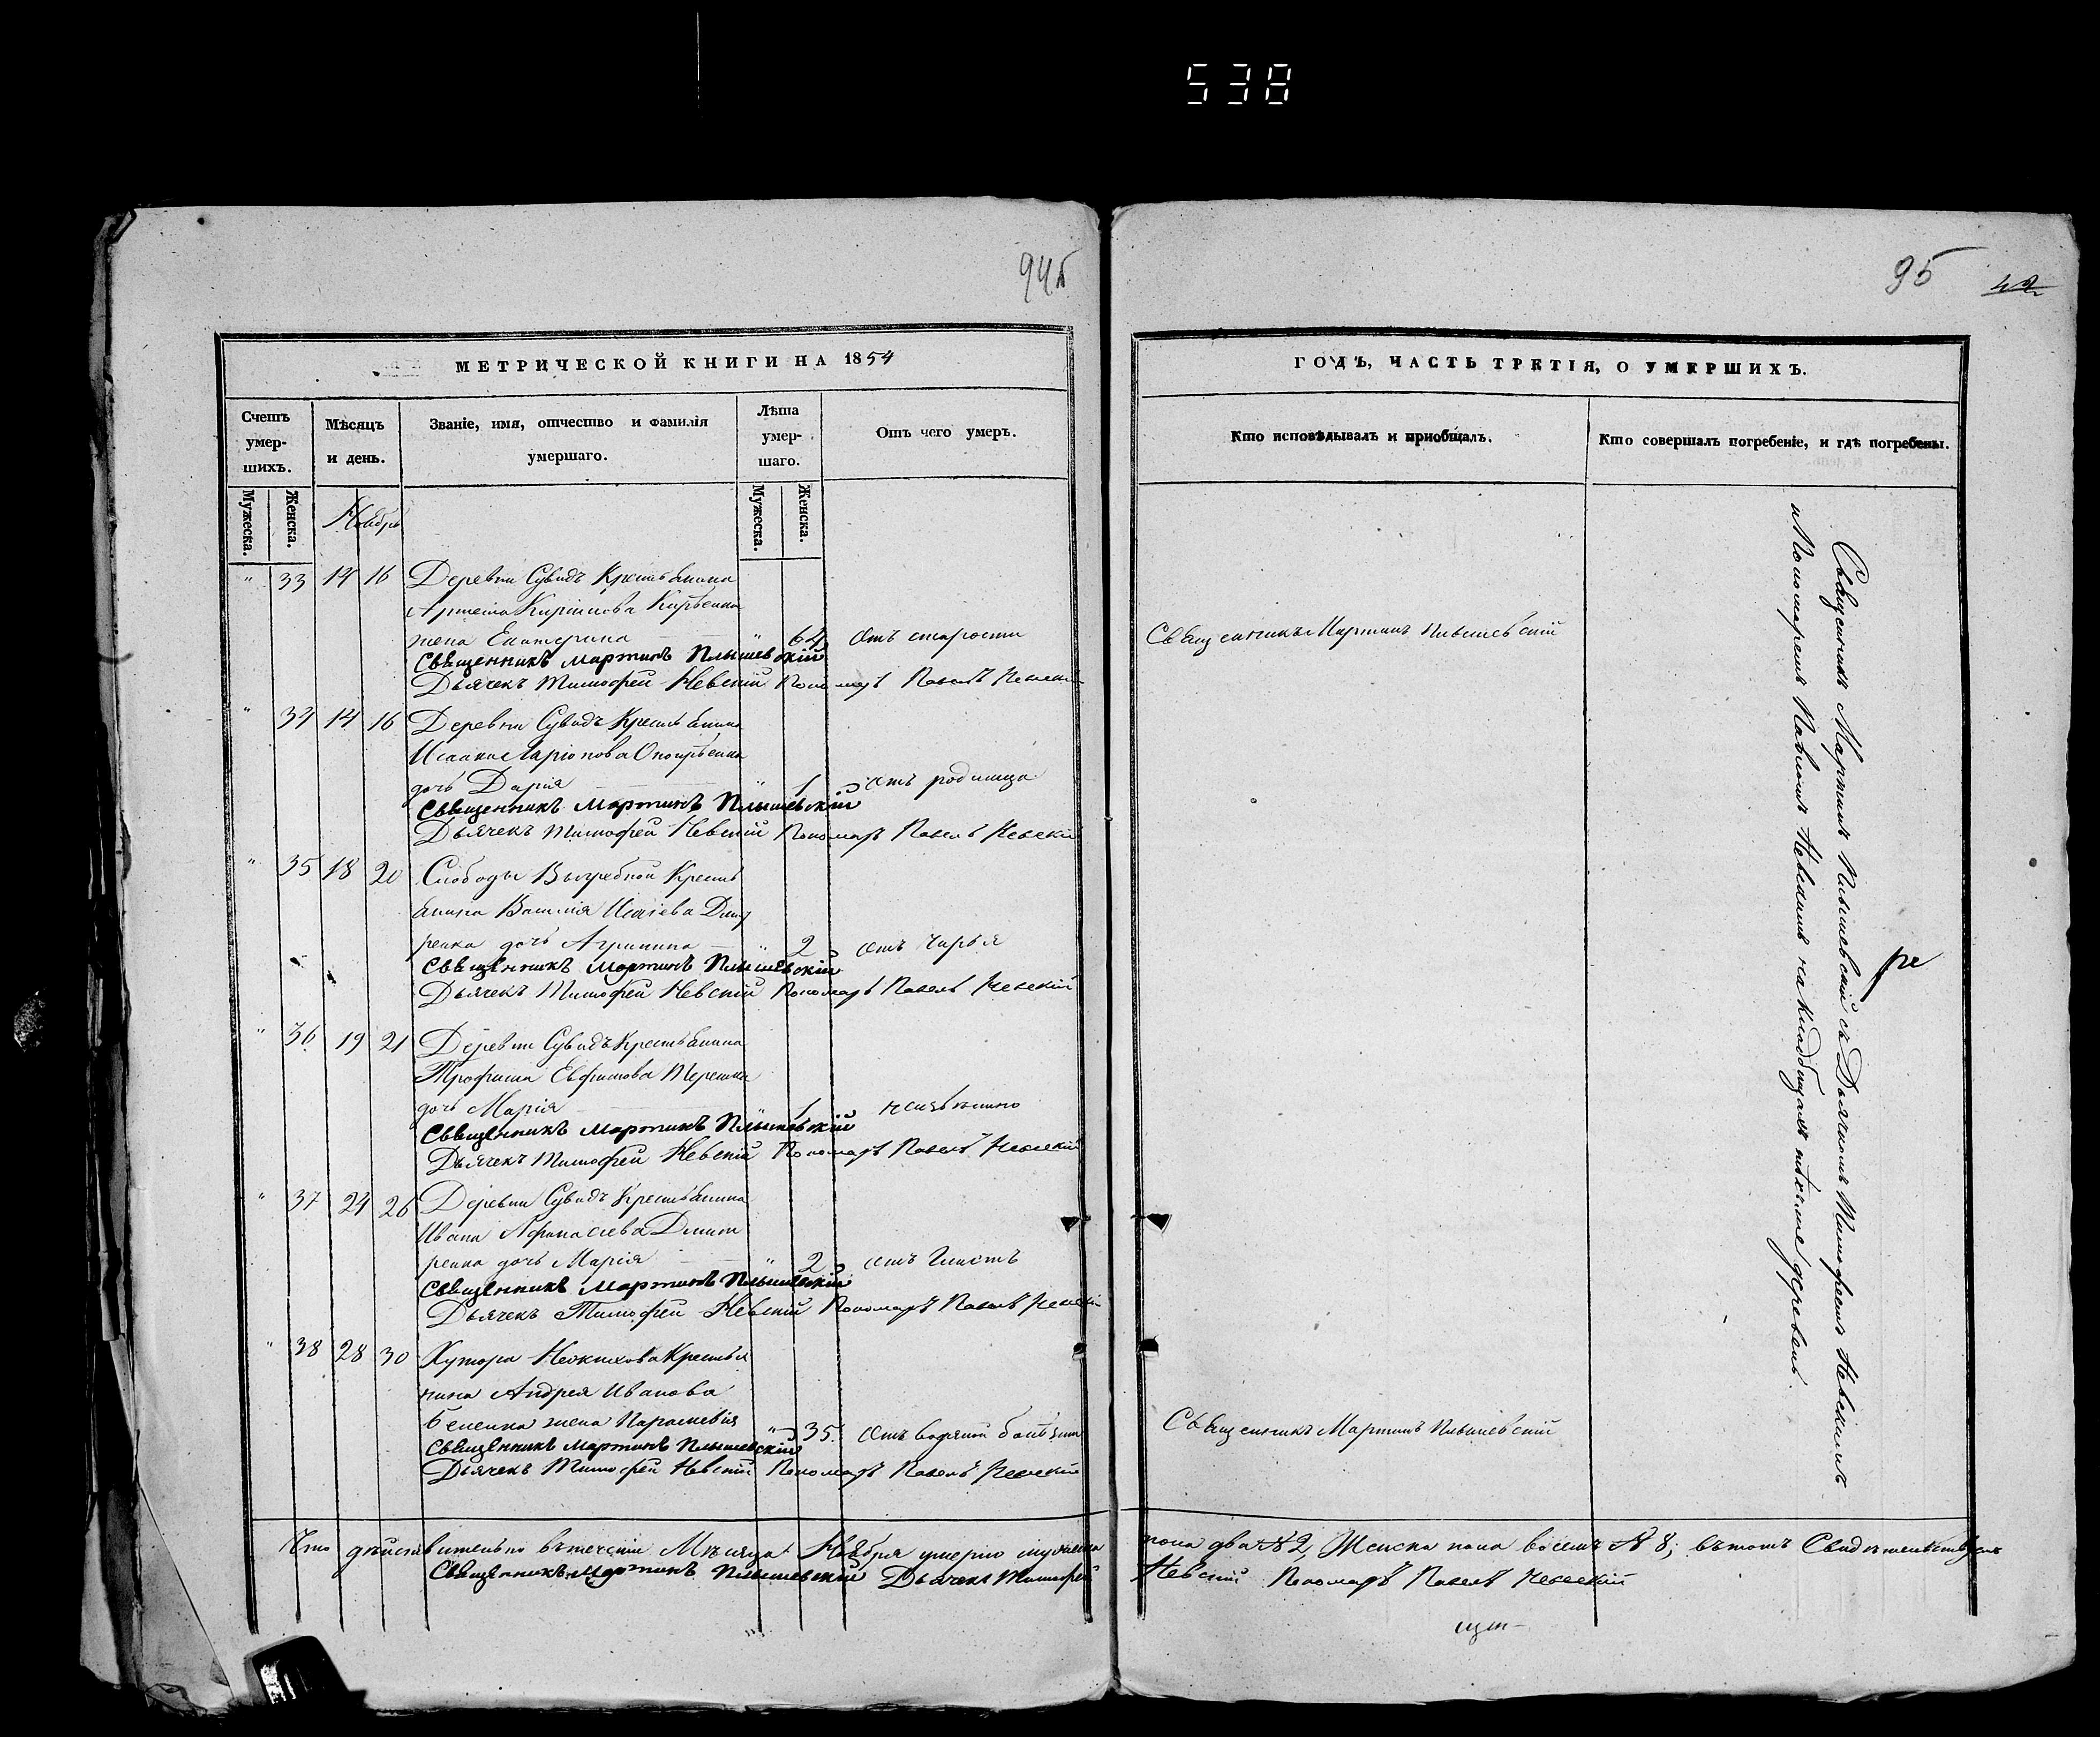 538
94б
МЕТРИЧЕСКОЙ КНИГИ НА 1854
Счетъ умершихъ.
Мѣсяцъ и день.
Званіе, имя, отчество и фамилія умершаго.
Лѣта умершаго.
Отъ чего умеръ.
Мужеска. Женска.
Мужеска. Женска.
Ноябрь
" 33 14 16 Деревни Сувидъ Крестьянина
Артема Кирилова
жена Екатерина " 64 Отъ старости
Священникъ Мартинъ Плышевскій
Дьячекъ Тимофей Невскій Пономарь Павелъ Невскій
" 34 14 16 Деревни Сувидъ Крестьянина
Исаака Ларіонова
дочь Дарія " 1 отъ родимца
Священникъ Мартинъ Плышевскій
Дьячекъ Тимофей Невскій Пономарь Павелъ Невскій
" 35 18 20 Слободы Выгребной Кресть
янина Василія Исаіева Дмит
ренка дочь Агрипина " 2 отъ чирья
Священникъ Мартинъ Плышевскій
Дьячекъ Тимофей Невскій Пономарь Павелъ Невскій
" 36 19 21 Деревни Сувидъ Крестьянина
Трофима Евфимова
дочь Марія " 1 неизвѣстно
Священникъ Мартинъ Плышевскій
Дьячекъ Тимофей Невскій Пономарь Павелъ Невскій
" 37 24 26 Деревни Сувидъ Крестьянина
Ивана Афанасіева Дмит
ренка дочь Марія " 2 отъ Глистъ
Священникъ Мартинъ Плышевскій
Дьячекъ Тимофей Невскій Пономарь Павелъ Невскій
" 38 28 30 Хутора Крестья
нина Андрея Иванова
жена Параскевія " 35 Отъ водяной болѣзни
Священникъ Мартинъ Плышевскій
Дьячекъ Тимофей Невскій Пономарь Павелъ Невскій
Что дѣйствительно въ теченіи Мѣсяца Ноября умерло мужеска
Священникъ Мартинъ Плышевскій Дьячекъ Тимофей
95 42
ГОДЪ, ЧАСТЬ ТРЕТІЯ, О УМЕРШИХЪ.
Кто исповѣдывалъ и приобщалъ.
Кто совершалъ погребеніе, и гдѣ погребены.
Священникъ Мартинъ Плышевскій
Священникъ Мартинъ Плышевскій
Священникъ Мартинъ Плышевскій съ Дьячкомъ Тимофеемъ Невскимъ
и Пономаремъ Павломъ Невскимъ на кладбищахъ тѣхъ же деревень.
ре
пола два № 2, Женска пола восемь № 8; въ томъ Свидѣтельствуемъ
Невскій Пономарь Павелъ Невскій